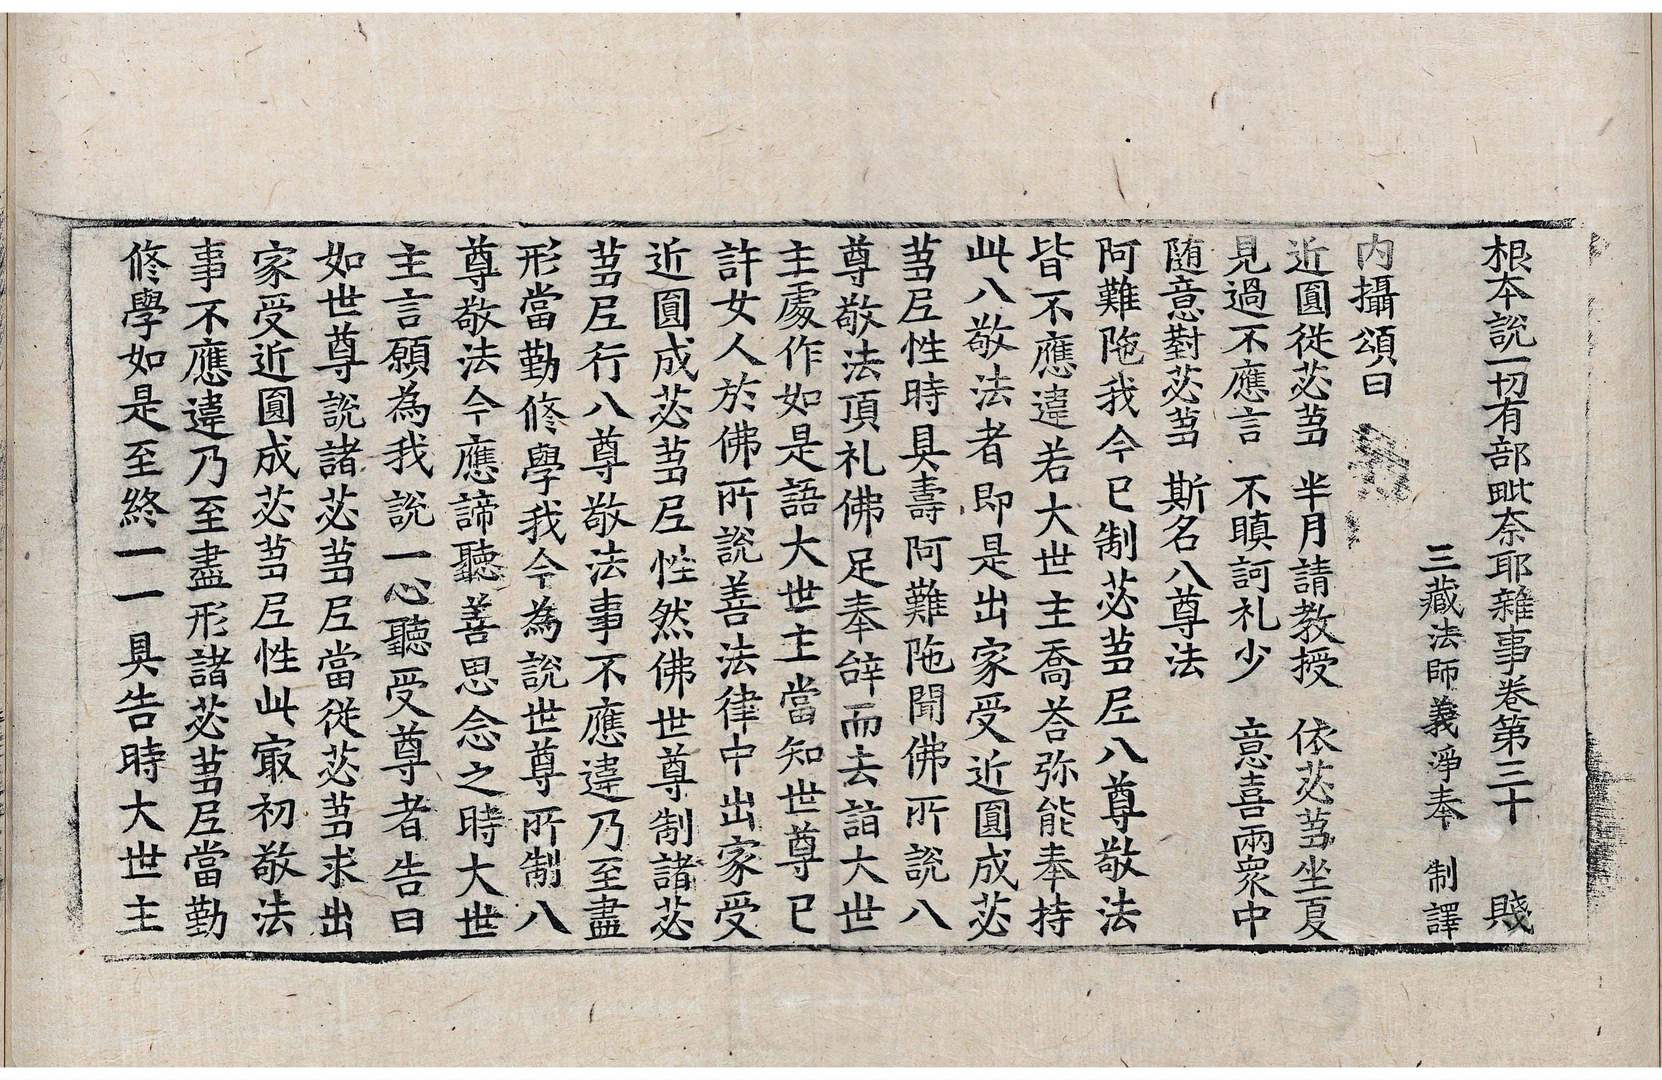 根本說一切有部毗奈耶雜事卷第三十 賤
三藏法師義淨奉 制譯
內攝頌曰
近圓從苾芻 半月請教授 依苾芻坐夏
見過不應言 不瞋訶礼少 意喜兩衆中
随意對苾芻 斯名八尊法
阿難陁我今已制苾芻尼八尊敬法
皆不應違若大世主喬荅弥能奉持
此八敬法者即是出家受近圓成苾
芻尼性時具壽阿難陁聞佛所說八
尊敬法頂礼佛足奉辞而去詣大世
主處作如是語大世主當知世尊已
許女人於佛所說善法律中出家受
近圓成苾芻尼性然佛世尊制諸苾
芻尼行八尊敬法事不應違乃至盡
形當勤修學我今為說世尊所制八
尊敬法今應諦聽善思念之時大世
主言願為我說一心聽受尊者告曰
如世尊說諸苾芻尼當從苾芻求出
家受近圓成苾芻尼性此冣初敬法
事不應違乃至盡形諸苾芻尼當勤
修學如是至終一一具告時大世主